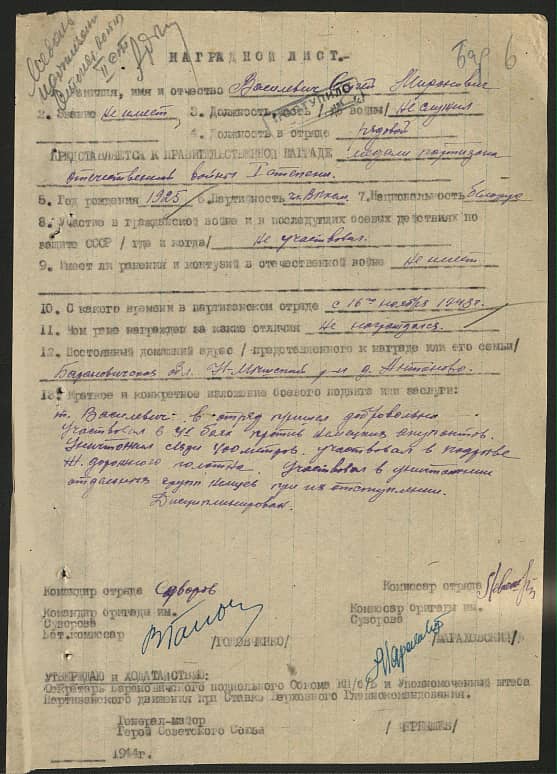 Партизан
Отечественн
II ст.
Бар 6
НАГРАДНОЙ ЛИСТ.-
Фамилия, имя и отчество Василевич Сергей Миронович
ПОСТУПИЛО
2. Звание Не имеет 3. Должность до войны/ Не служил
4. Должность в отряде Рядовой
ПРЕДСТАВЛЯЕТСЯ К ПРАВИТЕЛЬСТВЕННОЙ НАГРАДЕ медали партизана
отечественной войны I степени.
5. Год рождения 1925 6. Партийность чл. ВЛКСМ 7. Национальность белорус
8. Участие в гражданской войне и в последующих боевых действиях по
защите СССР / где и когда/ Не участвовал.
9. Имеет ли ранения и контузии в отечественной войне Не имеет
10. С какого времени в партизанском отряде с 16го ноября 1943г.
11. Чем ранее награжден за какие отличия Не награждался.
12. Постоянный домашний адрес /представленного к награде или его семьи/
Барановичская обл. Н-Мышский р-н д. Антоново.
13. Краткое и конкретное изложение боевого подвига или заслуги:
т. Василевич в отряд пришел добровольно
Участвовал в боях против немецких оккупантов.
Уничтожил связи 400 метров. участвовал в подрыве
ж. дорожного полотна. Участвовал в уничтожении
отдельных групп немцев при их отступлении.
Дисциплинирован.
Командир отряда Суворов Комиссар отряда
Командир бригады им. Комиссар бригады им.
Суворова Суворова
Бат.комиссар
/ТОЛОВЧЕНКО/ /МАРАХОВСКИЙ/
УТВЕРЖДАЮ и ХОДАТАЙСТВУЮ:
Секретарь Барановичского подпольного Обкома КП/б/Б и Уполномоченный штаба
Партизанского движения при Ставке Верховного Главнокомандования.
Генерал-майор
Герой Советского Союза /ЧЕРНЫШЕВ/
1944г.